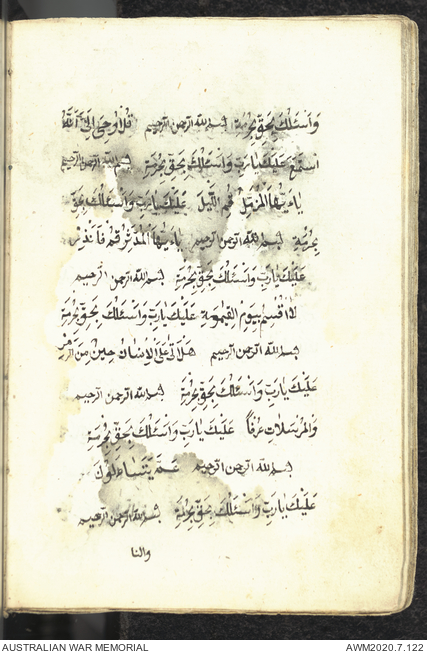 وَاَسْئَلُكَ بِحَقِّ بِحُرْمَةِ بسم الله الرحمن الرحيم قُلْ اُوحِىَ اِلَىَّ اَنَّهُ
اسْتَمَعَ عَلَيْكَ يَارَبِّ وَاَسْئَلُكَ بِحَقِّ بِحُرْمَةِ بسم الله الرحمن الرحيم
يَاءَيُّهَا الْمُزَّمِّلُ قُمِ الَّيْلَ عَلَيْكَ يَارَبِّ وَاَسْئَلُكَ بِحَقِّ
بِحُرْمَةِ بسم الله الرحمن الرحيم يَاءَيُّهَا الْمُدَّثِّرُ قُمْ فَاَنْذِرْ
عَلَيْكَ يَارَبِّ وَاَسْئَلُكَ بِحَقِّ بِحُرْمَةِ بسم الله الرحمن الرحيم
لَا اُقْسِمُ بِيَوْمِ الْقِيٰمَةِ عَلَيْكَ يَارَبِّ وَاَسْئَلُكَ بِحَقِّ بِحُرْمَةِ
بسم الله الرحمن الرحيم هَلْ اَتٰى عَلَى الْاِنْسَانِ حِينٌ مِنَ الدَّهْرِ
عَلَيْكَ يَارَبِّ وَاَسْئَلُكَ بِحَقِّ بِحُرْمَةِ بسم الله الرحمن الرحيم
وَالْمُرْسَلَاتِ عُرْفًا عَلَيْكَ يَارَبِّ وَاَسْئَلُكَ بِحَقِّ بِحُرْمَةِ
بسم الله الرحمن الرحيم عَمَّ يَتَسَاءَلُونَ
عَلَيْكَ يَارَبِّ وَاَسْئَلُكَ بِحَقِّ بِحُرْمَةِ بسم الله الرحمن الرحيم
والنا
AUSTRALIAN WAR MEMORIAL
AWM2020.7.122